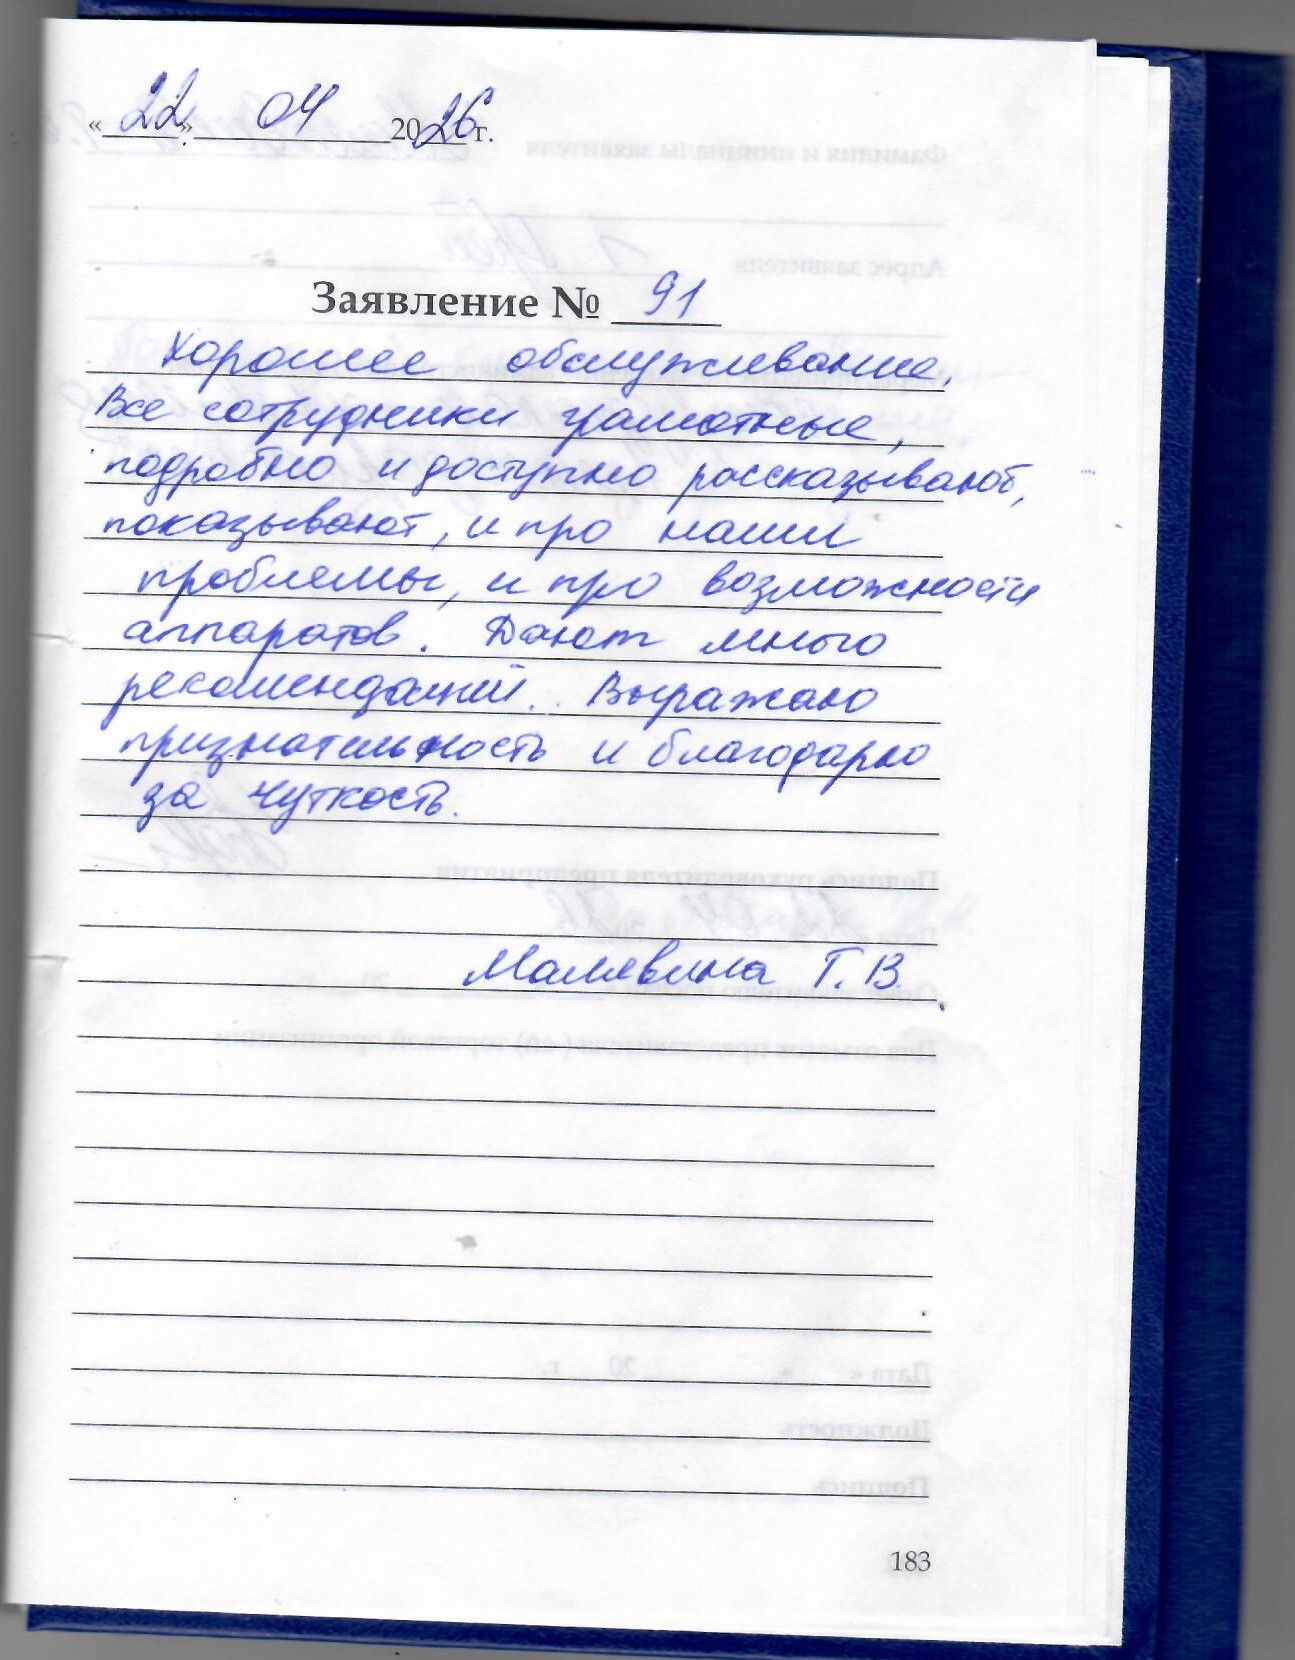 «22» 04 2026 г.
Заявление № 91
Хорошее обслуживание,
Все сотрудники грамотные,
подробно и доступно рассказывают,
показывают, и про наши
проблемы, и про возможности
аппаратов. Дают много
рекомендаций. Выражаю
признательность и благодарю
за чуткость.
Малявина Т. В.
183